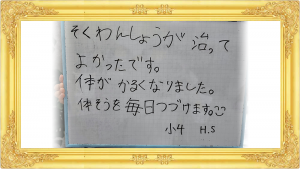 そくわんしょうが 治って
よかったです。
体が かるくなりました。
体そうを毎日つづけます。☺
小4 H.S